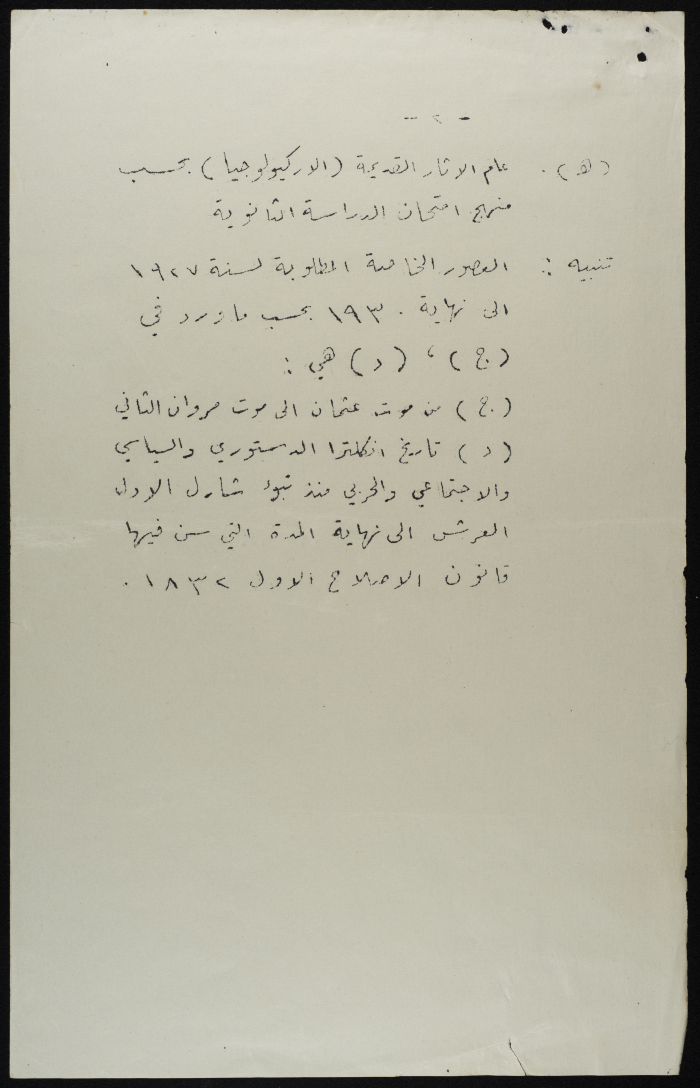 - ٢ -
(ه) . علم الاثار القديمة (الاركيولوجيا) بحسب
منهج امتحان الدراسة الثانوية
تنبيه : العصور الخاصة المطلوبة لسنة ١٩٢٧
الى نهاية ١٩٣٠ بحسب ما ورد في
(ج) ، (د) هي :
(ج) من موت عثمان الى موت مروان الثاني
(د) تاريخ انكلترا الدستوري والسياسي
والاجتماعي والحربي منذ تبوء شارل الاول
العرش الى نهاية المدة التي سن فيها
قانون الاصلاح الاول ١٨٣٢ .